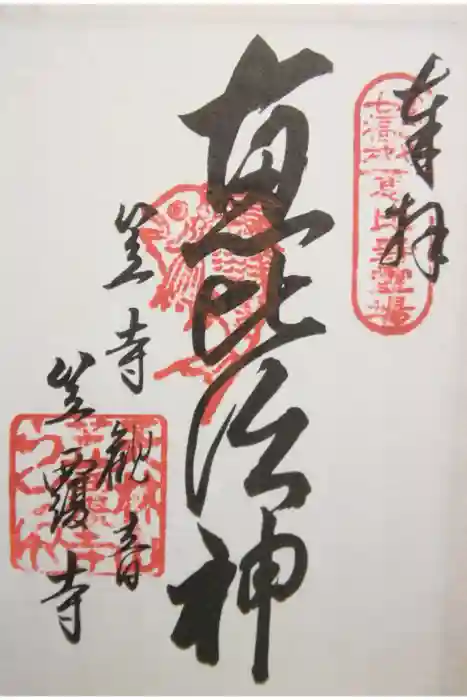 奉拝
七福神恵比寿霊場
恵比須神
笠寺観音
笠覆寺